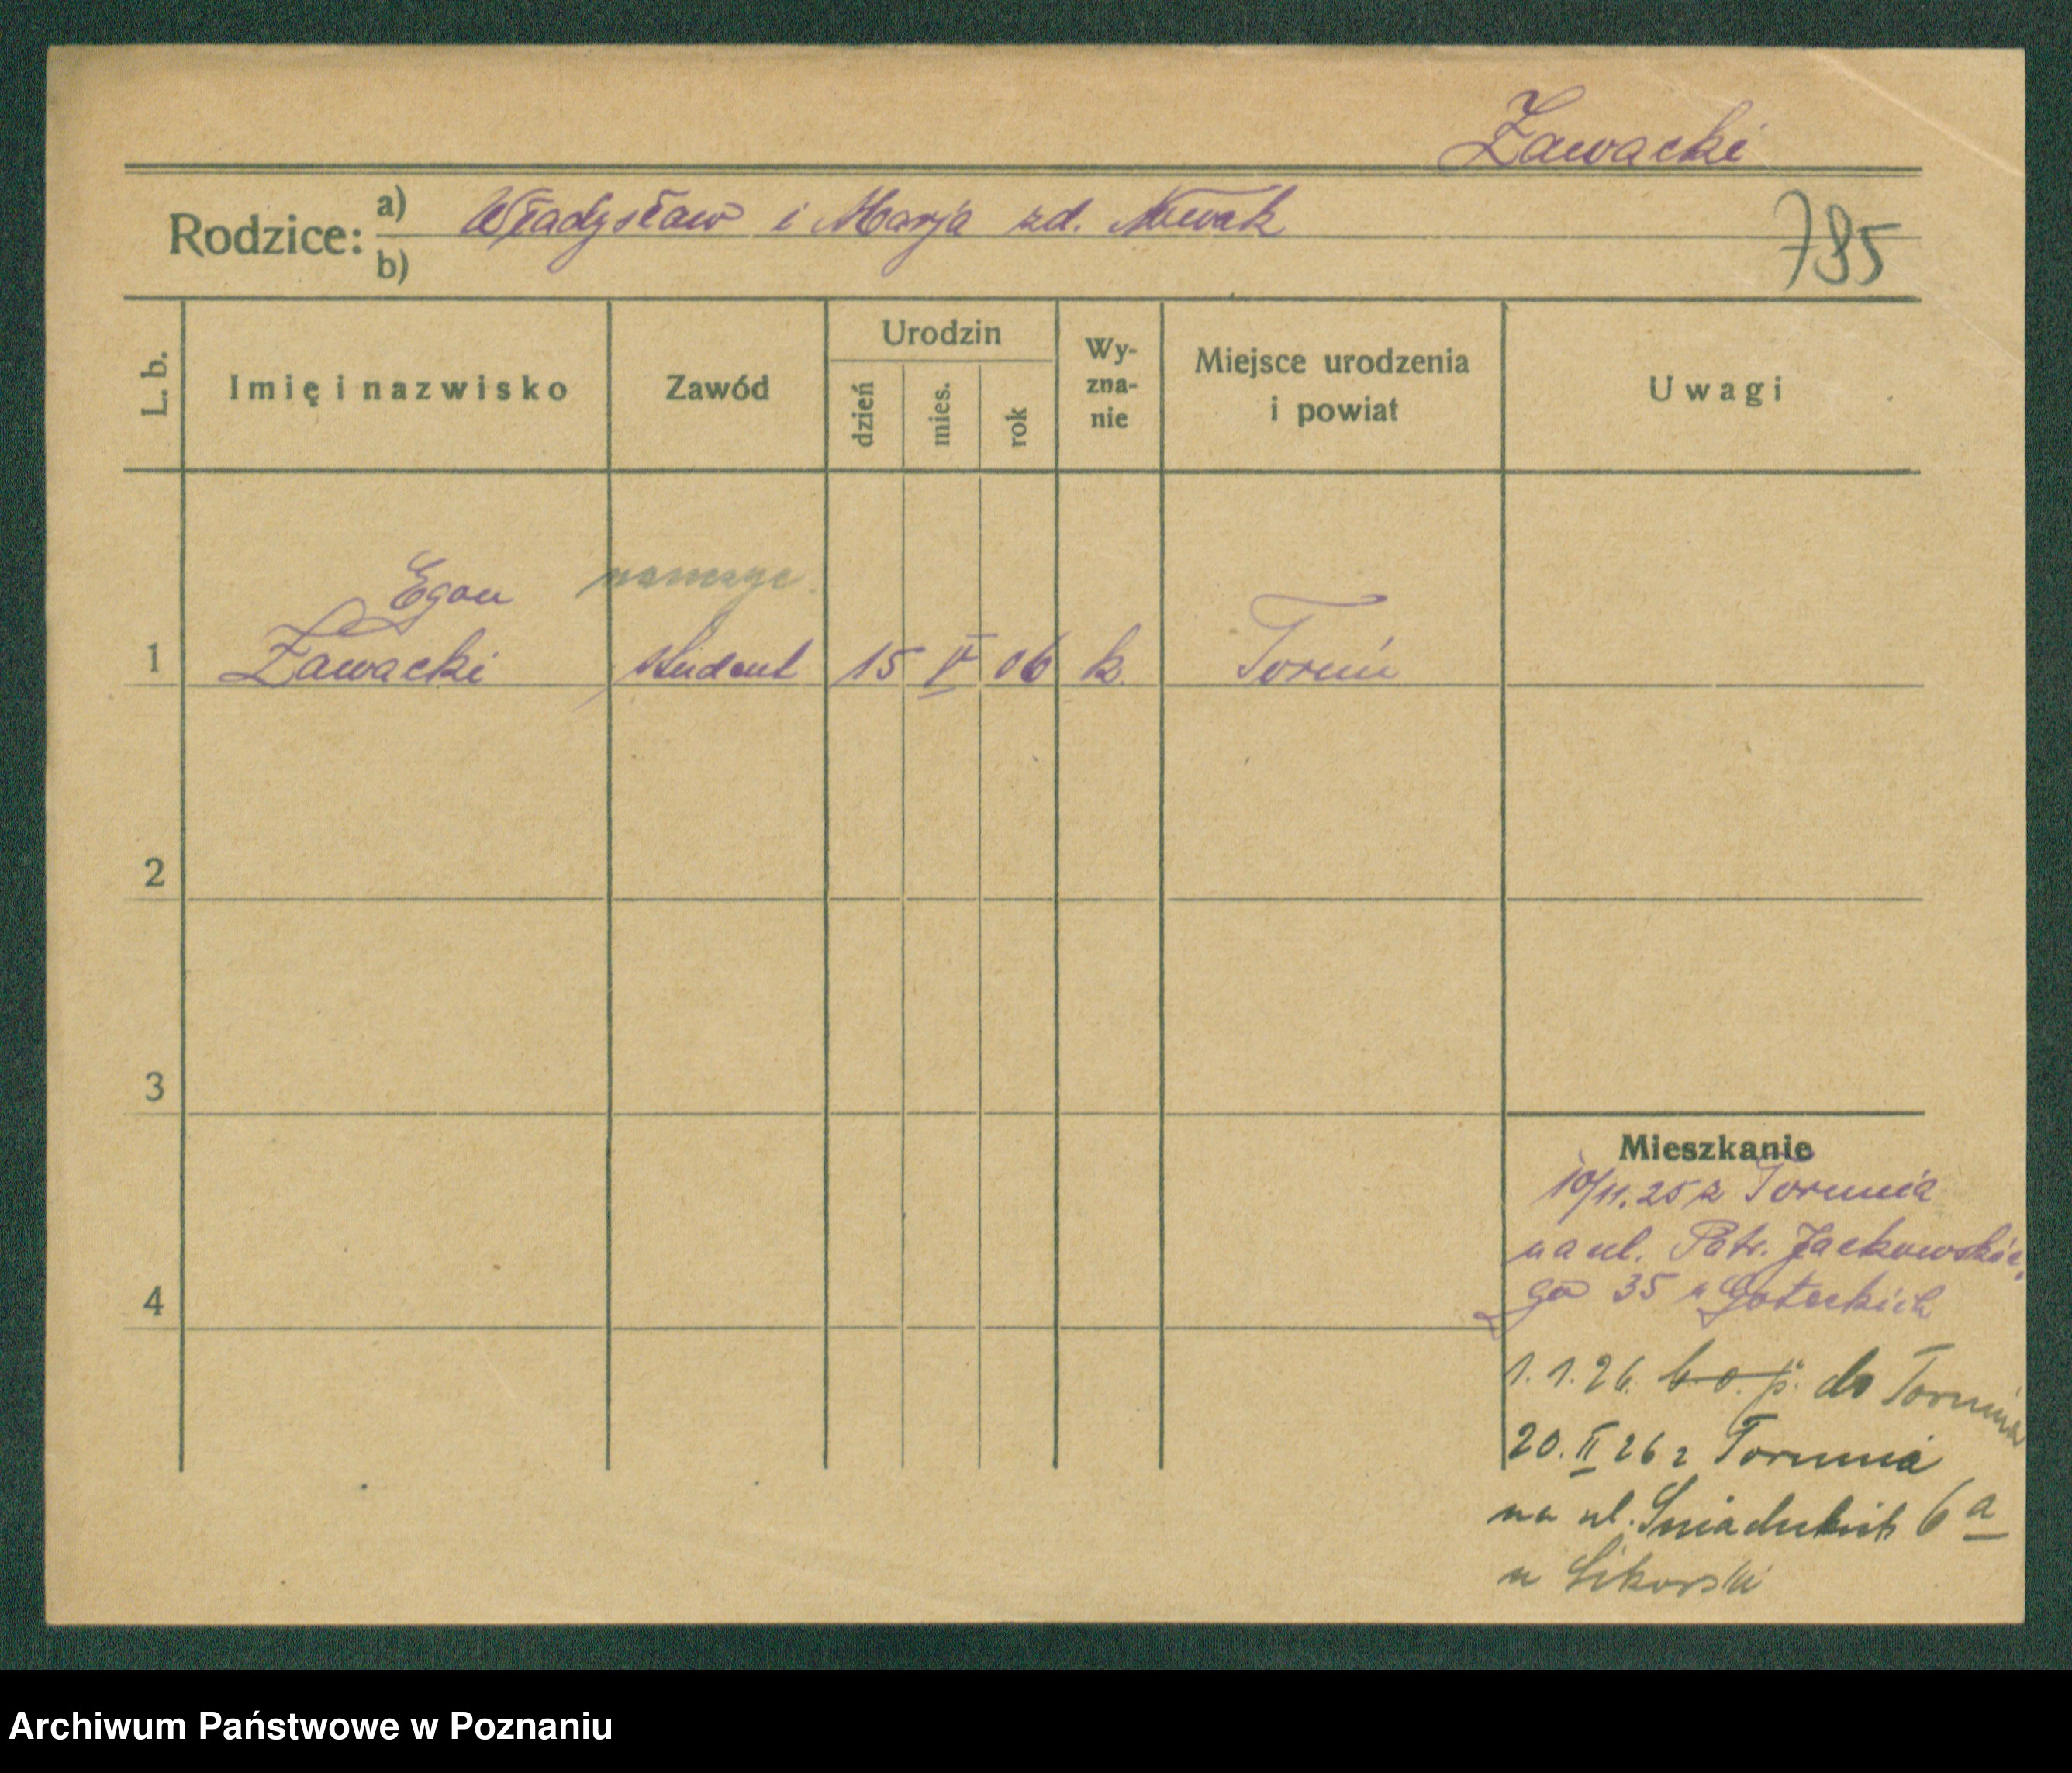 Zawacki
Rodzice: a) Władysław i Marja zd. Nowak
b)
785
L. b.
Imię i nazwisko
Zawód
Urodzin
dzień
mies.
rok
Wy-
zna-
nie
Miejsce urodzenia
i powiat
Uwagi
Egon
1 Zawacki student 15 V 06 k. Toruń
2
3
4
Mieszkanie
10/11.25 z Torunia
na ul. Patr. Jackowskie-
go 35 u
1.1.26. b. o. p. do Torunia
20. II 26 z Torunia
na ul. Śniadeckich 6 a
u Sikorski
Archiwum Państwowe w Poznaniu